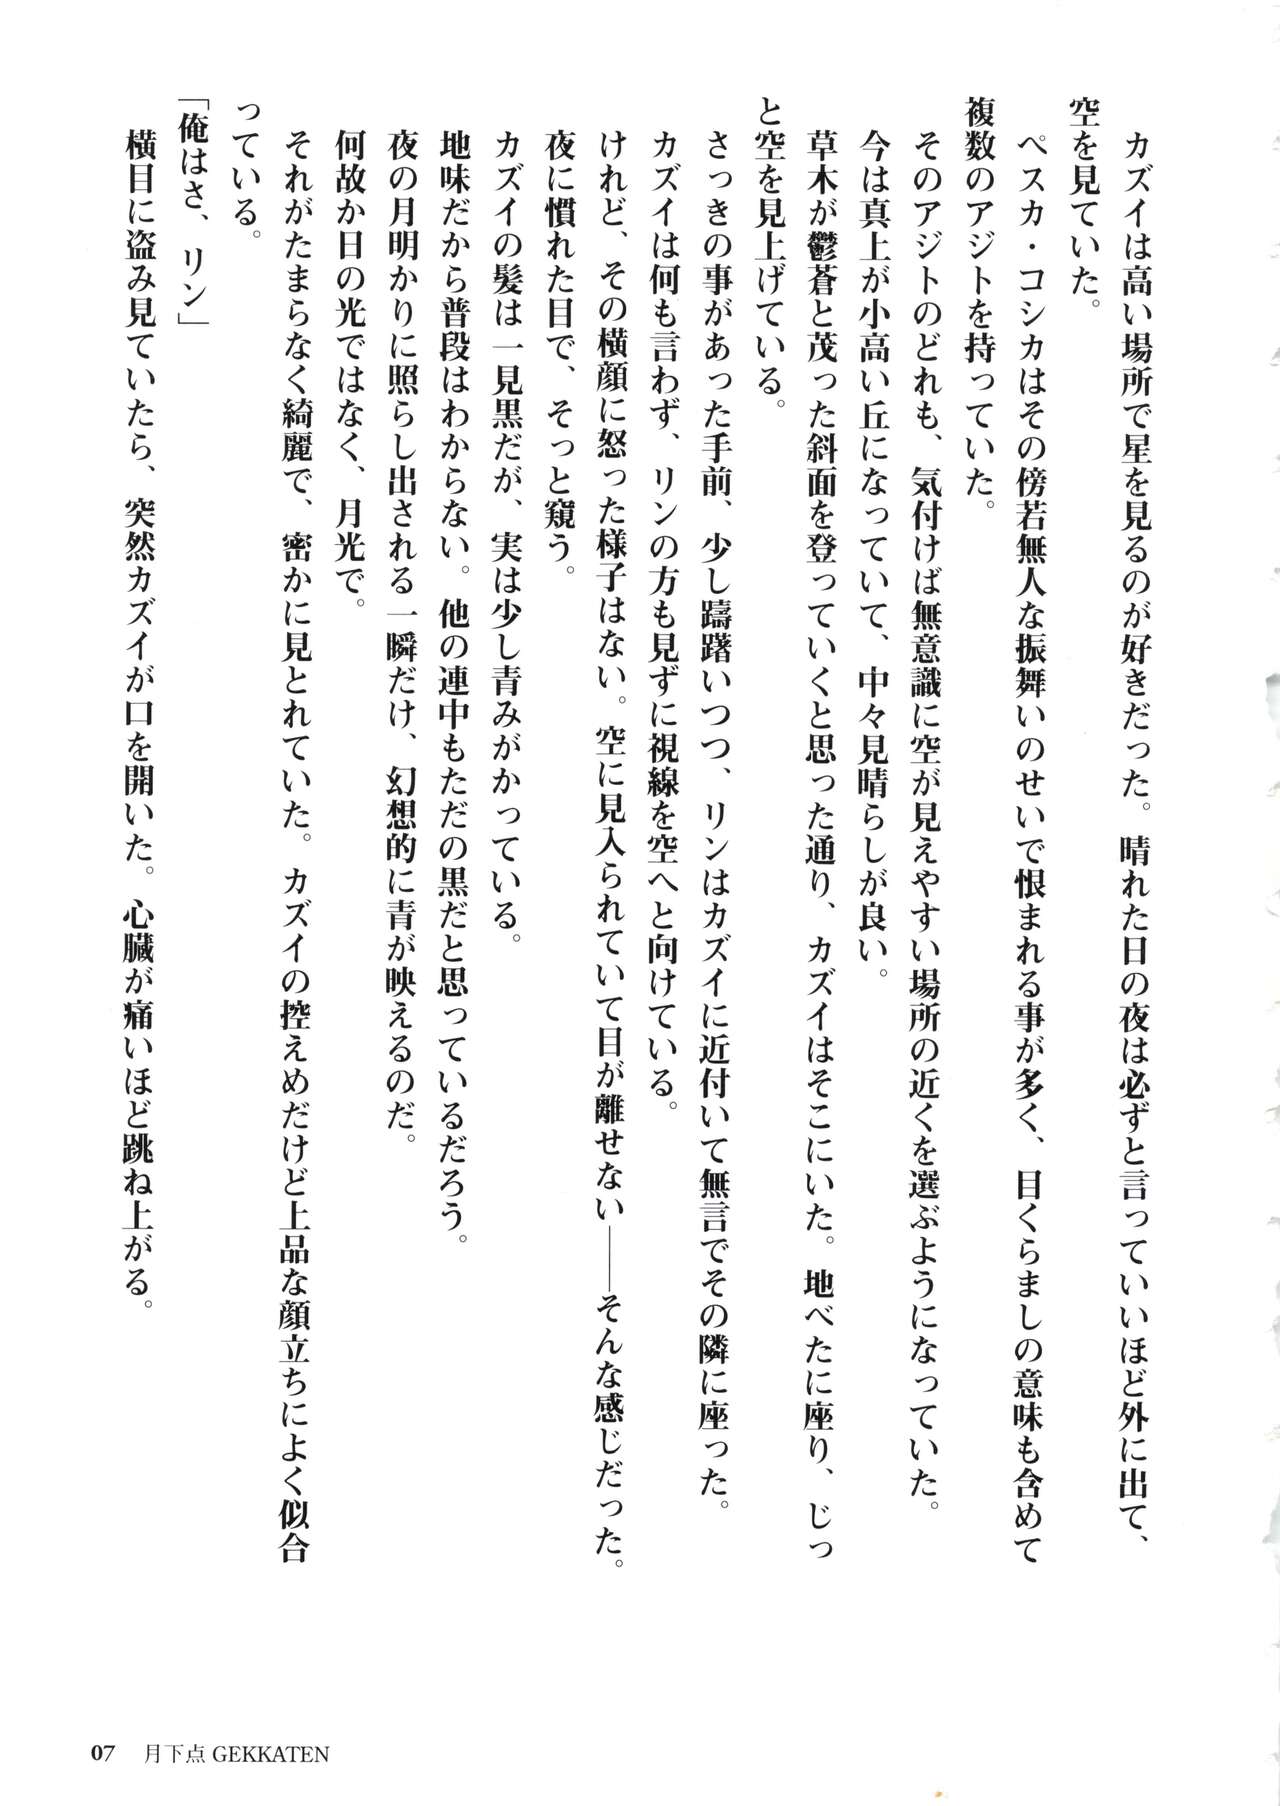 カズイは高い場所で星を見るのが好きだった。晴れた日の夜は必ずと言っていいほど外に出て、
空を見ていた。
ペスカ・コシカはその傍若無人な振舞いのせいで恨まれる事が多く、目くらましの意味も含めて
複数のアジトを持っていた。
そのアジトのどれも、気付けば無意識に空が見えやすい場所の近くを選ぶようになっていた。
今は真上が小高い丘になっていて、中々見晴らしが良い。
草木が鬱蒼と茂った斜面を登っていくと思った通り、カズイはそこにいた。地べたに座り、じっ
と空を見上げている。
さっきの事があった手前、少し躊躇いつつ、リンはカズイに近付いて無言でその隣に座った。
カズイは何も言わず、リンの方も見ずに視線を空へと向けている。
けれど、その横顔に怒った様子はない。空に見入られていて目が離せない――そんな感じだった。
夜に慣れた目で、そっと窺う。
カズイの髪は一見黒だが、実は少し青みがかっている。
地味だから普段はわからない。他の連中もただの黒だと思っているだろう。
夜の月明かりに照らし出される一瞬だけ、幻想的に青が映えるのだ。
何故か日の光ではなく、月光で。
それがたまらなく綺麗で、密かに見とれていた。カズイの控えめだけど上品な顔立ちによく似合
っている。
「俺はさ、リン」
横目に盗み見ていたら、突然カズイが口を開いた。心臓が痛いほど跳ね上がる。
07 月下点 GEKKATEN